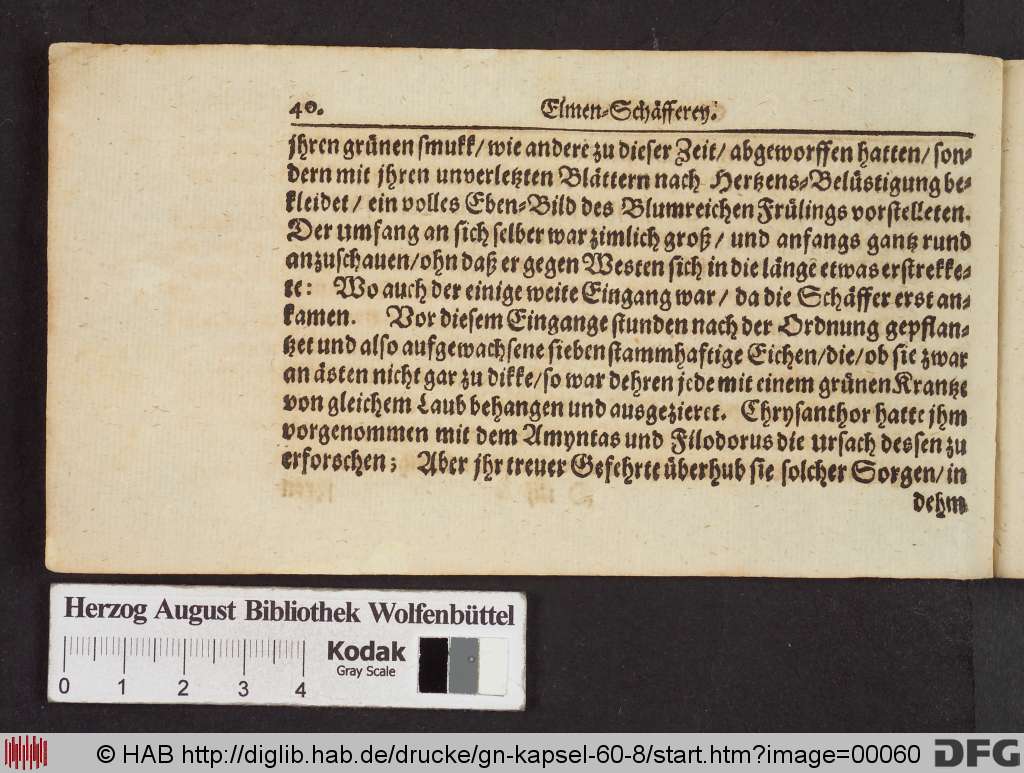 40. Elmen-Schäfferey.
jhren grünen smukk/ wie andere zu dieser Zeit/ abgeworffen hatten/ son-
dern mit jhren unverletzten Blättern nach Hertzens-Belüstigung be-
kleidet/ ein volles Eben-Bild des Blumreichen Frülings vorstelleten.
Der umfang an sich selber war zimlich groß/ und anfangs gantz rund
anzuschauen/ ohn daß er gegen Westen sich in die länge etwas erstrekke-
te: Wo auch der einige weite Eingang war/ da die Schäffer erst an-
kamen. Vor diesem Eingange stunden nach der Ordnung gepflan-
tzet und also aufgewachsene sieben stammhaftige Eichen/ die/ ob sie zwar
an ästen nicht gar zu dikke/ so war dehren jede mit einem grünen Krantze
von gleichem Laub behangen und ausgezieret. Chrysanthor hatte jhm
vorgenommen mit dem Amyntas und Filodorus die ursach dessen zu
erforschen; Aber jhr treuer Gefehrte überhub sie solcher Sorgen/ in
dehm
Herzog August Bibliothek Wolfenbüttel
Kodak
Gray Scale
0 1 2 3 4
© HAB http://diglib.hab.de/drucke/gn-kapsel-60-8/start.htm?image=00060
DFG